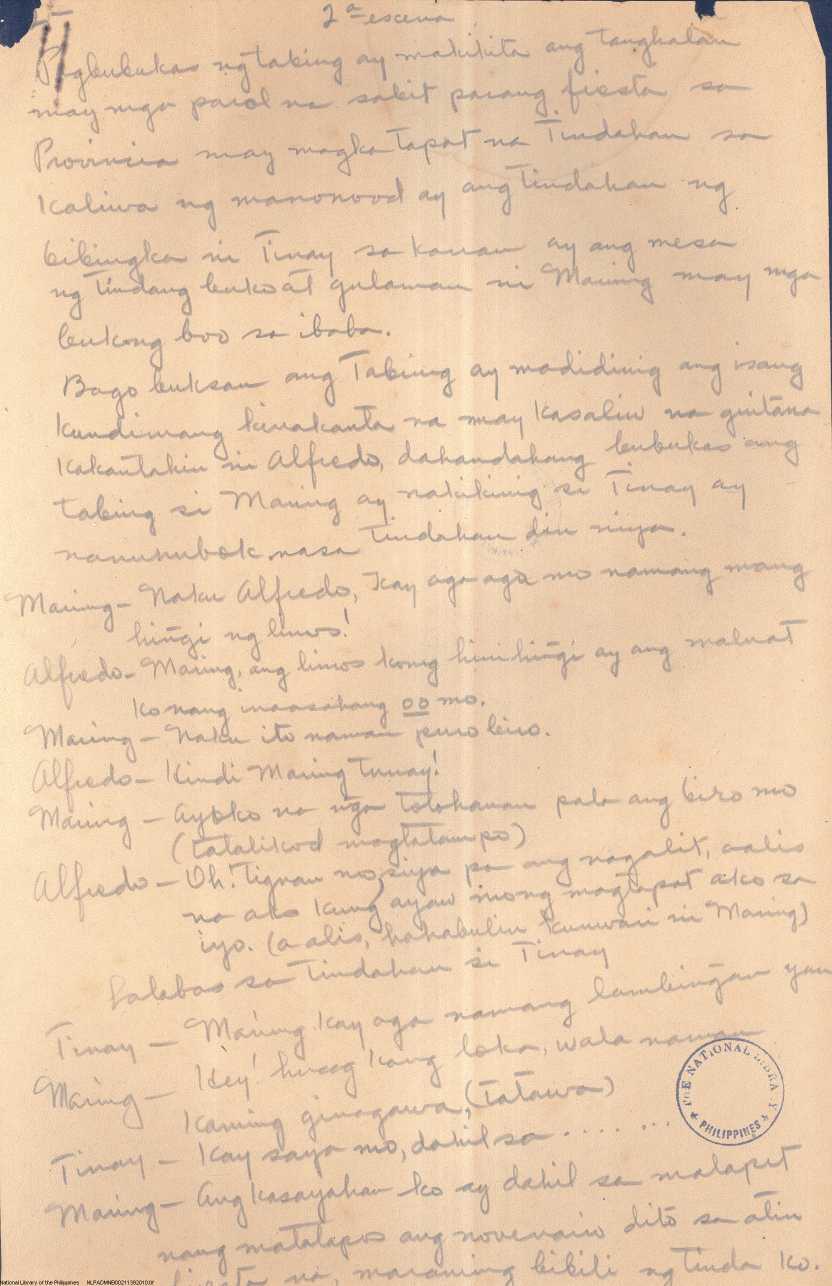 2ª escena
Pagbubukas ng tabing ay makikita ang tanghalan
may mga parol na sabit parang fiesta sa
Provincia may magka tapat na Tindahan sa
Kaliwa ng manonood ay ang Tindahan ng
bibingka ni Tinay sa kanan ay ang mesa
ng Tindang buko at gulaman ni Maring may mga
bukong boo sa ibaba.
Bago buksan ang Tabing ay madidinig ang isang
kundimang kinakanta na may kasaliw na guitara
kakantahin ni Alfredo, dahandahang bubukas ang
tabing si Maring ay nakikinig si Tinay ay
nanunubok nasa Tindahan din niya.
Maring - Naku Alfredo, Kay aga aga mo namang mang
hingi ng limos!
Alfredo - Maring, ang limos kong hinihingi ay ang maluat
ko nang inaasahang oo mo.
Maring - Naku ito naman puro biro.
Alfredo - Hindi Maring Tunay!
Maring - Ayoko na nga totohanan pala ang biro mo
(tatalikod magtatampo)
Alfredo - Oh! Tignan mo, siya pa ang nagalit, aalis
na ako kung ayaw mong magtapat ako sa
iyo. (a alis, hahabulin kunwari ni Maring)
Lalabas sa Tindahan si Tinay
Tinay - Maring kay aga namang lambingan yan
Maring - Hey! huag kang loka, wala naman
kaming ginagawa, (Tatawa)
Tinay - Kay saya mo, dahil sa . . . . . . .
Maring - Ang kasayahan ko ay dahil sa malapit
nang matatapos ang novenario dito sa atin
fiesta na, maraming bibili ng tinda ko.
THE NATIONAL LIBRARY
PHILIPPINES
National Library of the Philippines NLPADMNB00211392010.tif